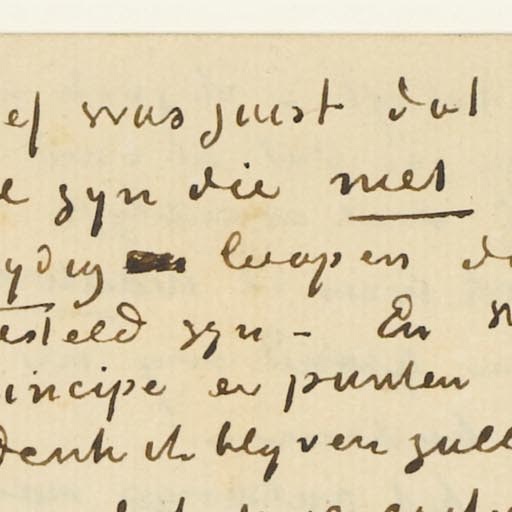 ef was juist dat
e zyn die met
ydig loopen do
esteld zyn - En
incipe er punten
denk ik blyven zull